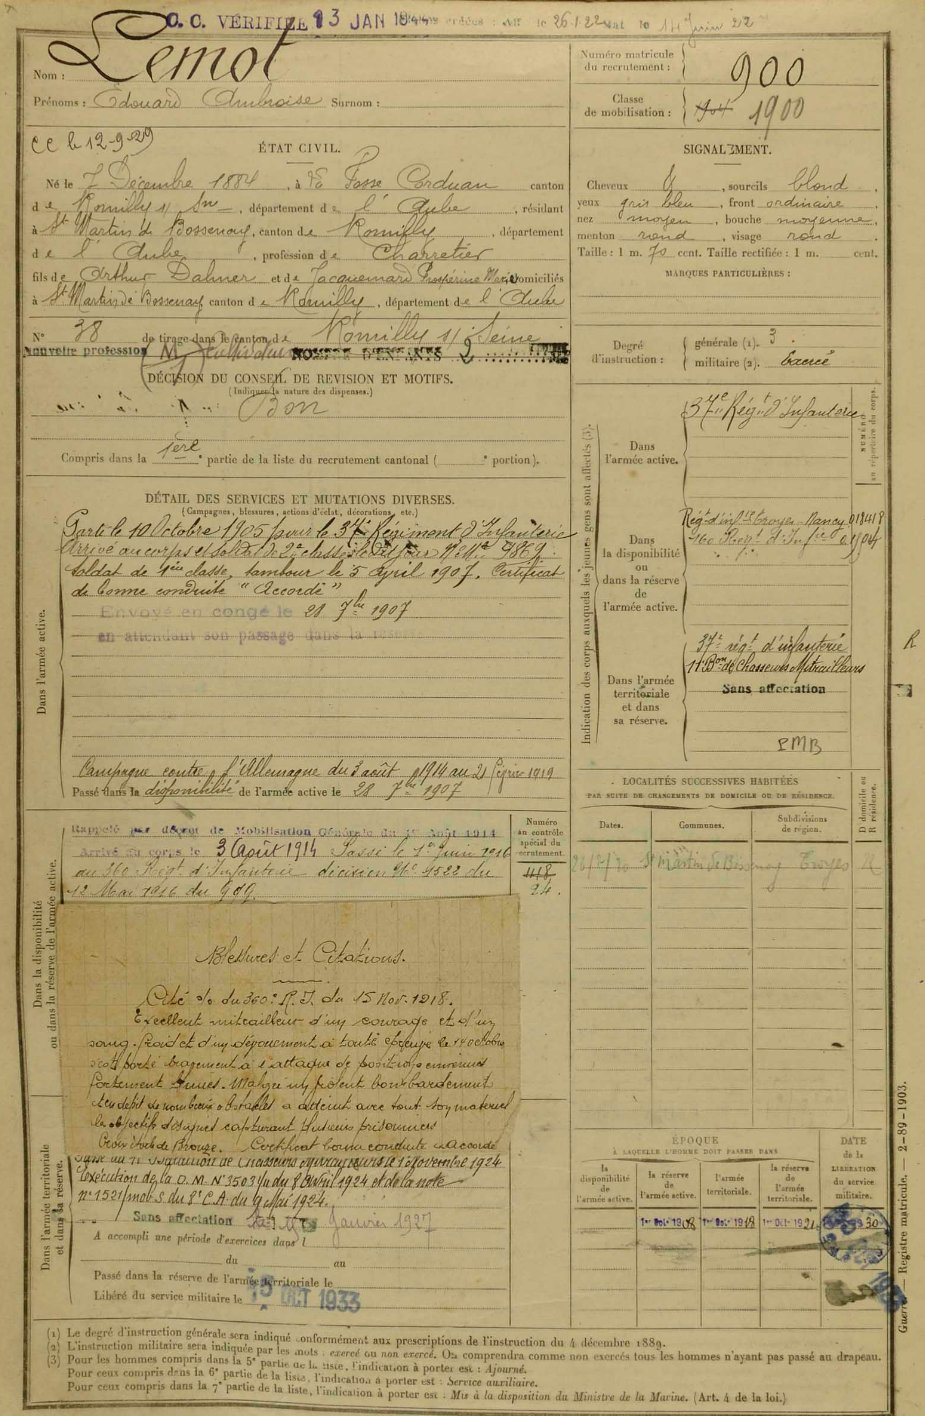 C. C. VÉRIFIÉ 13 JAN 1944
Nom : Lemot
Prénoms : Edouard Ambroise Surnom :
Numéro matricule du recrutement : 900
Classe de mobilisation : 1904 1900
CC le 12-9-29
ÉTAT CIVIL.
Né le 7 Décembre 1884, à La Fosse Corduan canton
de Romilly s/ Sne, département de l'Aube, résidant
à St Martin de Bossenay, canton de Romilly, département
de l'Aube, profession de Charretier
fils de Arthur Dalmer et de Jacquemard Prospérine Marie domiciliés
à St Martin de Bossenay canton de Romilly, département de l'Aube
N° 38 de tirage dans le canton de Romilly s/ Seine
Nouvelle profession
NOMBRE D'ENFANTS 2
SIGNALEMENT.
Cheveux , sourcils blond
yeux gris bleu, front ordinaire
nez moyen, bouche moyenne
menton rond, visage rond
Taille : 1 m. 70 cent. Taille rectifiée : 1 m. cent.
MARQUES PARTICULIÈRES :
Degré d'instruction :
générale (1). 3
militaire (2). Exercé
DÉCISION DU CONSEIL DE REVISION ET MOTIFS.
(Indiquer la nature des dispenses.)
Bon
Compris dans la 1ère partie de la liste du recrutement cantonal ( portion).
DÉTAIL DES SERVICES ET MUTATIONS DIVERSES.
(Campagnes, blessures, actions d'éclat, décorations, etc.)
Dans l'armée active.
Parti le 10 Octobre 1905 pour le 37e Régiment d'Infanterie
Arrivé au corps et soldat de 2e classe le dit jour N° Mle 9869.
Soldat de 1ère classe, tambour le 5 avril 1907. Certificat
de bonne conduite "Accordé"
Envoyé en congé le 28 7bre 1907
en attendant son passage dans la réserve
Campagne contre l'Allemagne du 3 août 1914 au 21 février 1919
Passé dans la disponibilité de l'armée active le 28 7bre 1907
Indication des corps auxquels les jeunes gens sont affectés (3).
NUMÉRO au répertoire du corps.
Dans l'armée active.
37e Régt d'Infanterie
Dans la disponibilité ou dans la réserve de l'armée active.
Régt d'infie Troyes-Nancy 018418
360 Régt d'Infie
Dans l'armée territoriale et dans sa réserve.
37e régt d'infanterie
11e Bon de Chasseurs Mitrailleurs
Sans affectation
PMB
R
LOCALITÉS SUCCESSIVES HABITÉES
PAR SUITE DE CHANGEMENTS DE DOMICILE OU DE RÉSIDENCE.
D domicile ou R résidence.
Dates. Communes. Subdivisions de région.
St Martin de Bossenay Troyes R
Dans la disponibilité ou dans la réserve de l'armée active.
Numéro au contrôle spécial du recrutement.
418
24.
Rappelé par décret de Mobilisation Générale du 1er Août 1914
Arrivé au corps le 3 Août 1914 Passé le 1er Juin 1916
au 360 Régt d'Infanterie décision N° 1522 du
12 Mai 1916 du G.Q.G.
Blessures et Citations.
Cité O. du 360e R.I. du 15 Nov. 1918.
Excellent mitrailleur d'un courage et d'un
sang-froid et d'un dévouement à toute épreuve le 14 octobre
s'est porté bravement à l'attaque de positions ennemies
fortement tenues. Malgré un violent bombardement
et en dépit de nombreux obstacles a atteint avec tout son matériel
les objectifs désignés capturant plusieurs prisonniers
Croix étoile de Bronze. Certificat bonne conduite accordé
Dans l'armée territoriale et dans sa réserve.
Passé au 11e Bataillon de Chasseurs Mitrailleurs le 1er Novembre 1924
exécution de la D. M. N° 3503 1/4 du 8 Avril 1924 et de la note
n° 1521/mob S. du 8e C.A. du 9 Mai 1924.
Sans affectation Janvier 1927
A accompli une période d'exercices dans l
du au
Passé dans la réserve de l'armée territoriale le
Libéré du service militaire le 15 OCT 1933
ÉPOQUE
À LAQUELLE L'HOMME DOIT PASSER DANS
la disponibilité de l'armée active.
la réserve de l'armée active.
l'armée territoriale.
la réserve de l'armée territoriale.
DATE de la LIBÉRATION du service militaire.
1er Oct 1908 1er Oct 1918 1er Oct 1921
Guerre. — Registre matricule. — 2-89-1903.
(1) Le degré d'instruction générale sera indiqué conformément aux prescriptions de l'instruction du 4 décembre 1889.
(2) L'instruction militaire sera indiquée par les mots : exercé ou non exercé. On comprendra comme non exercés tous les hommes n'ayant pas passé au drapeau.
(3) Pour les hommes compris dans la 5e partie de la liste, l'indication à porter est : Ajourné.
Pour ceux compris dans la 6e partie de la liste, l'indication à porter est : Service auxiliaire.
Pour ceux compris dans la 7e partie de la liste, l'indication à porter est : Mis à la disposition du Ministre de la Marine. (Art. 4 de la loi.)